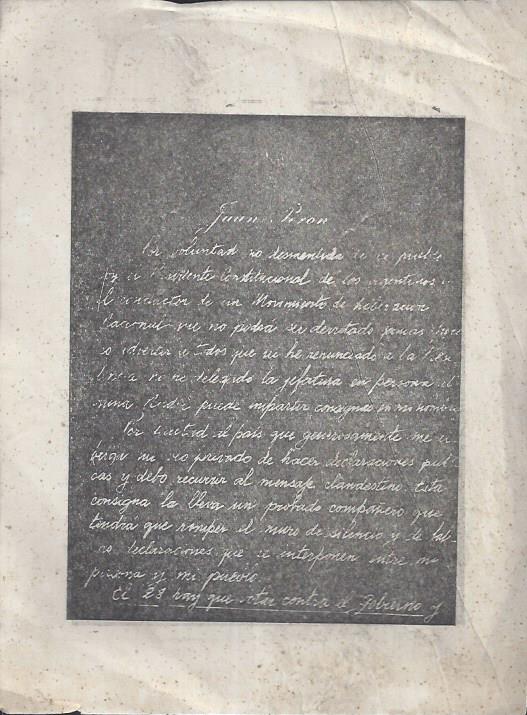 Juan Peron
Por voluntad no desmentida de un pueblo
soy el Presidente Constitucional de los argentinos y
el conductor de un Movimiento de Liberacion
Nacional que no podrá ser derrotado jamas
advertir a todos que ni he renunciado a la
ni he delegado la jefatura en persona
Nadie puede impartir consignas en mi nombre
Por lealtad al país que generosamente me
he privado de hacer declaraciones
cas y debo recurrir al mensaje clandestino. Esta
consigna la lleva un probado compañero que
tendra que romper el muro de silencio y de fal
declaraciones que se interponen entre mi
persona y mi pueblo.
El 28 hay que votar contra el Gobierno y